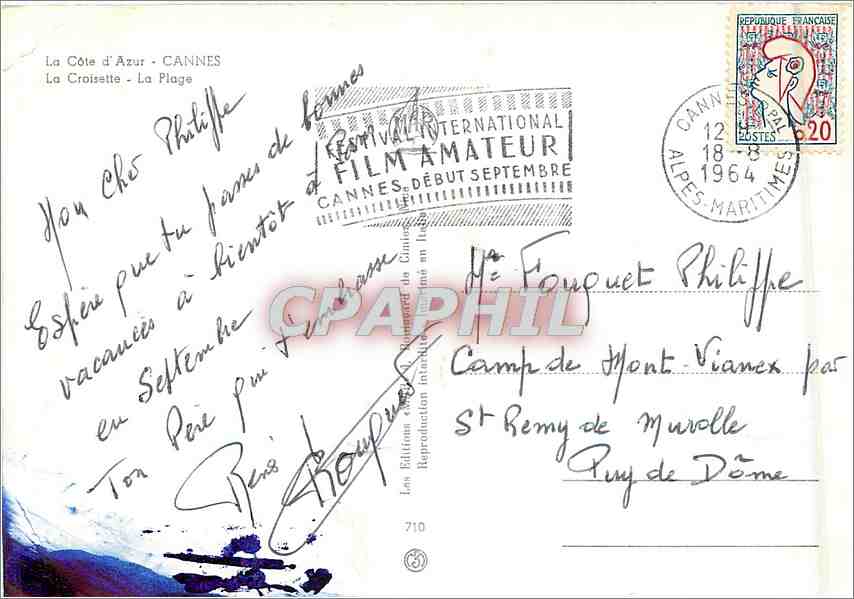 La Côte d'Azur - CANNES
La Croisette - La Plage
Mon Cher Philippe
Espère que tu passes de bonnes
vacances à bientôt à
en Septembre
Ton Père qui t'embrasse
René Fouquet
FESTIVAL INTERNATIONAL
FILM AMATEUR
CANNES DÉBUT SEPTEMBRE
CANNES
PAL
12
18-8
1964
ALPES-MARITIMES
REPUBLIQUE FRANÇAISE
POSTES
0.20
Les Editions Boulevard de Cimiez
Reproduction interdite Imprimé en Italie
710
Mr Fouquet Philippe
Camp de Mont-Vianex par
St Remy de Murolle
Puy de Dôme
CPAPHIL